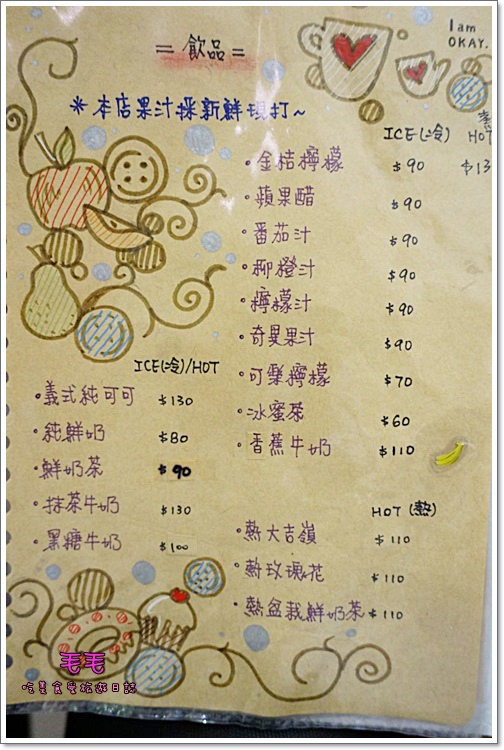 I am
OKAY.
= 飲品 =
＊本店果汁採新鮮現打~
ICE(冷) HOT
·金桔檸檬 $90 $13
·蘋果醋 $90
·番茄汁 $90
·柳橙汁 $90
·檸檬汁 $90
·奇異果汁 $90
·可樂檸檬 $70
·冰蜜茶 $60
·香蕉牛奶 $110
ICE(冷)/HOT
·義式純可可 $130
·純鮮奶 $80
·鮮奶茶 $90
·抹茶牛奶 $130
·黑糖牛奶 $100
HOT (熱)
·熱大吉嶺 $110
·熱玫瑰花 $110
·熱盆栽鮮奶茶 $110
毛毛
吃美食與旅遊日記